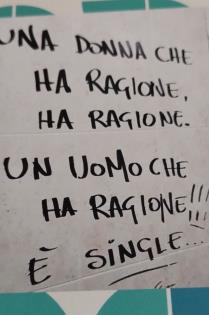 UNA DONNA CHE
HA RAGIONE,
HA RAGIONE.
UN UOMO CHE
HA RAGIONE!!!
È SINGLE...